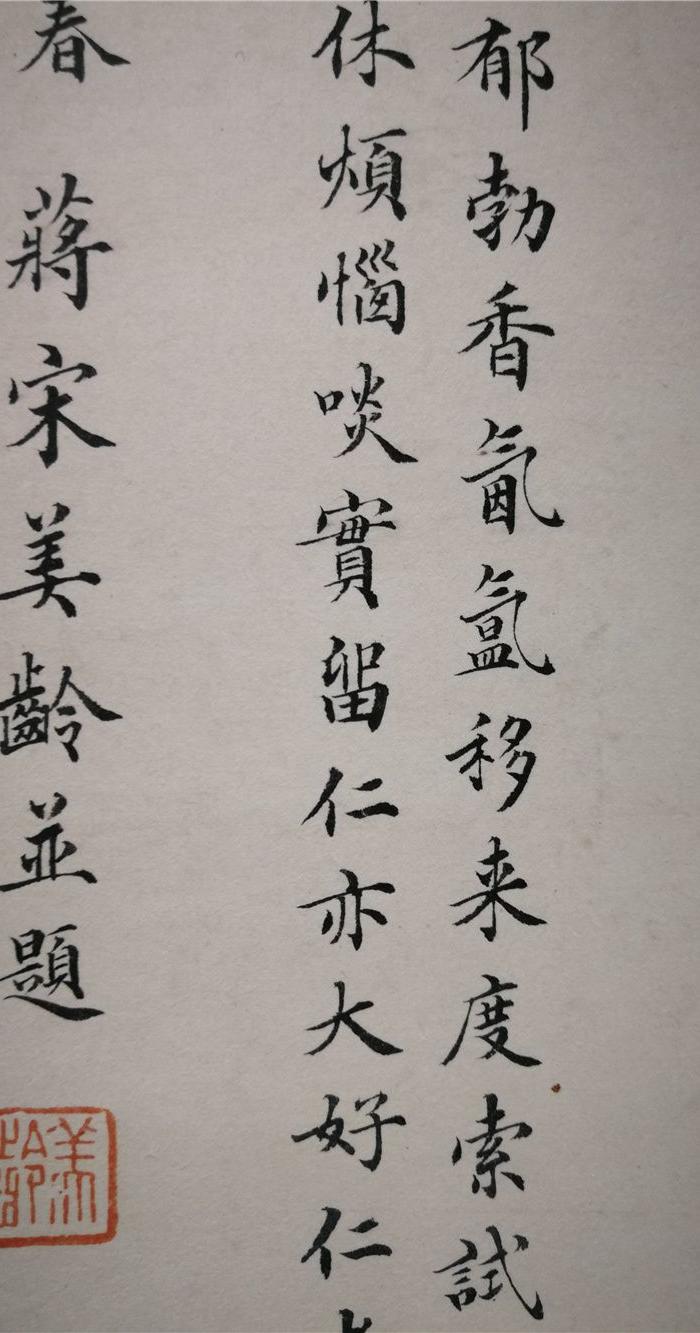 郁勃香氤氲移来度索試
休煩惱啖實留仁亦大好仁
春 蔣宋美齡並題
美齡